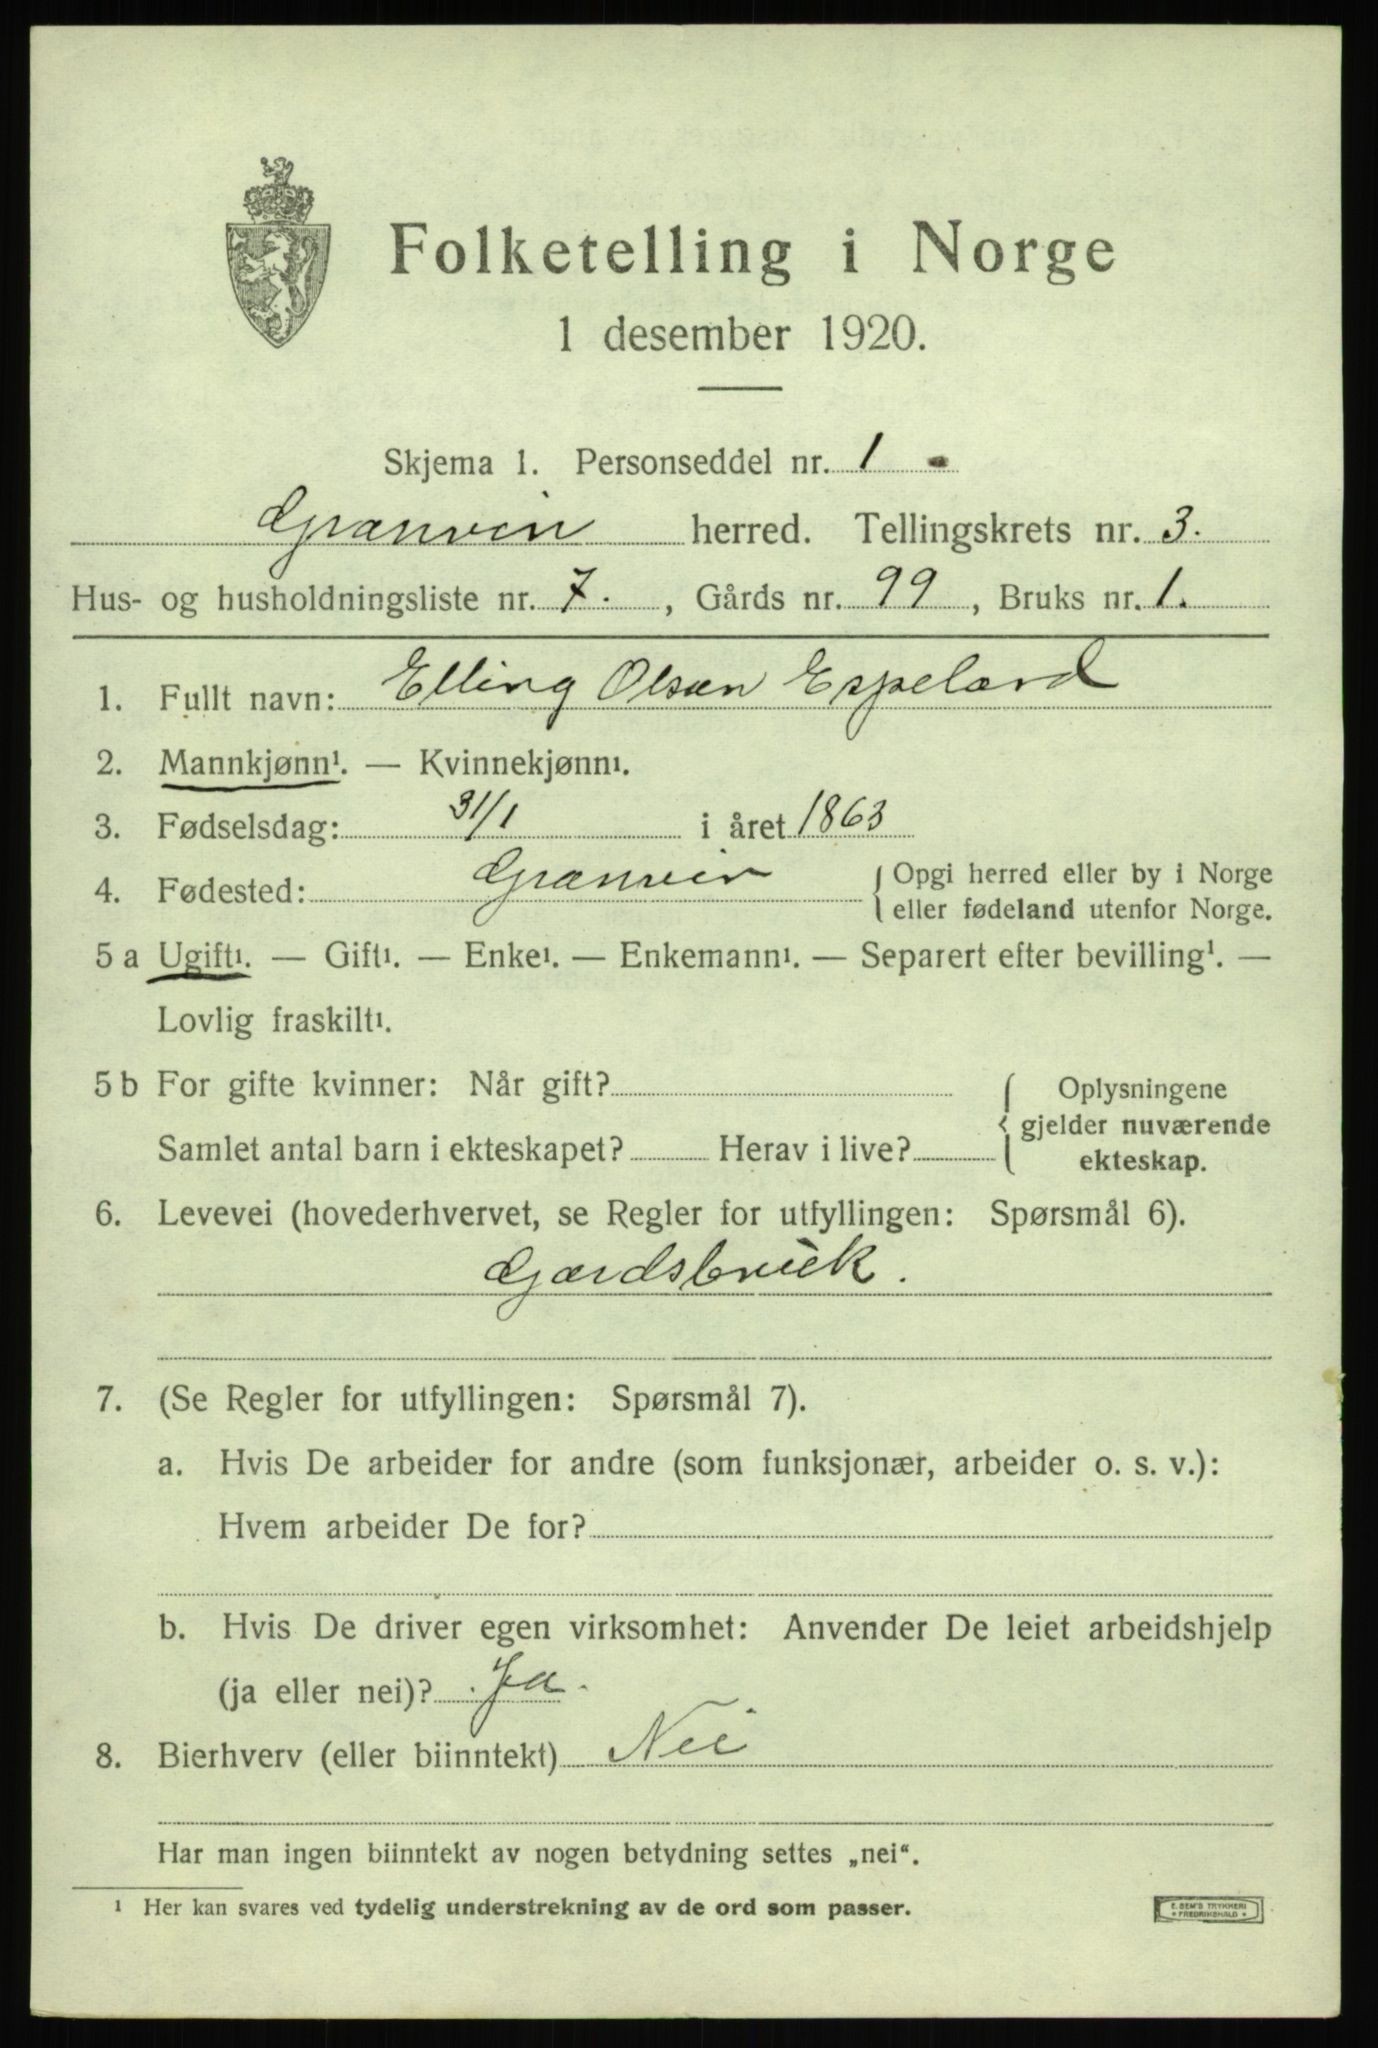 Folketelling i Norge
1 desember 1920.
Skjema 1. Personseddel nr. 1
Granvin herred. Tellingskrets nr. 3.
Hus- og husholdningsliste nr. 7., Gårds nr. 99, Bruks nr. 1.
1. Fullt navn: Elling Olsen Espeland
2. Mannkjønn¹. — Kvinnekjønn¹.
3. Fødselsdag: 31/1 i året 1863
4. Fødested: Granvin { Opgi herred eller by i Norge
eller fødeland utenfor Norge.
5 a Ugift¹. — Gift¹. — Enke¹. — Enkemann¹. — Separert efter bevilling¹. —
Lovlig fraskilt¹.
5 b For gifte kvinner: Når gift? { Oplysningene
gjelder nuværende
Samlet antal barn i ekteskapet? Herav i live? ekteskap.
6. Levevei (hovederhvervet, se Regler for utfyllingen: Spørsmål 6).
Gardsbruk.
7. (Se Regler for utfyllingen: Spørsmål 7).
a. Hvis De arbeider for andre (som funksjonær, arbeider o. s. v.):
Hvem arbeider De for?
b. Hvis De driver egen virksomhet: Anvender De leiet arbeidshjelp
(ja eller nei)? Ja.
8. Bierhverv (eller biinntekt) Nei
Har man ingen biinntekt av nogen betydning settes „nei“.
¹ Her kan svares ved tydelig understrekning av de ord som passer.
E. SEM'S TRYKKERI
* FREDRIKSHALD *